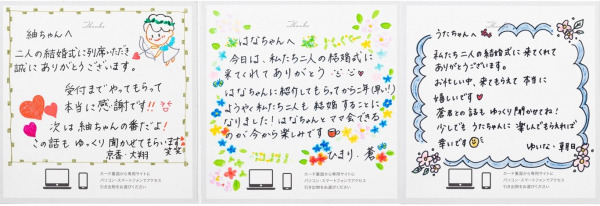 Thanks
紬ちゃんへ
二人の結婚式に列席いただき
誠にありがとうございます。
受付までやってもらって
本当に感謝です!!
次は紬ちゃんの番だよ!
この話もゆっくり聞かせてもらいます
笑笑
京香・大翔
カード裏面から専用サイトに
パソコン・スマートフォンでアクセス
引き出物をお選びください
Thanks
はなちゃんへ
今日は、私たち二人の結婚式に
来てくれてありがとう
はなちゃんに紹介してもらってから二年(早い!)
ようやく私たち二人も結婚することに
なりました!はなちゃんとママ会できる
のが今から楽しみです
ひまり・蒼
カード裏面から専用サイトに
パソコン・スマートフォンでアクセス
引き出物をお選びください
Thanks
うたちゃんへ
私たち二人の結婚式に来てくれて
ありがとうございます。
お忙しい中、来てもらえて本当に
嬉しいです
蒼君との話もゆっくり聞かせてね!
少しでもうたちゃんに楽しんでもらえれば
幸いです
ゆいな・朝日
カード裏面から専用サイトに
パソコン・スマートフォンでアクセス
引き出物をお選びください